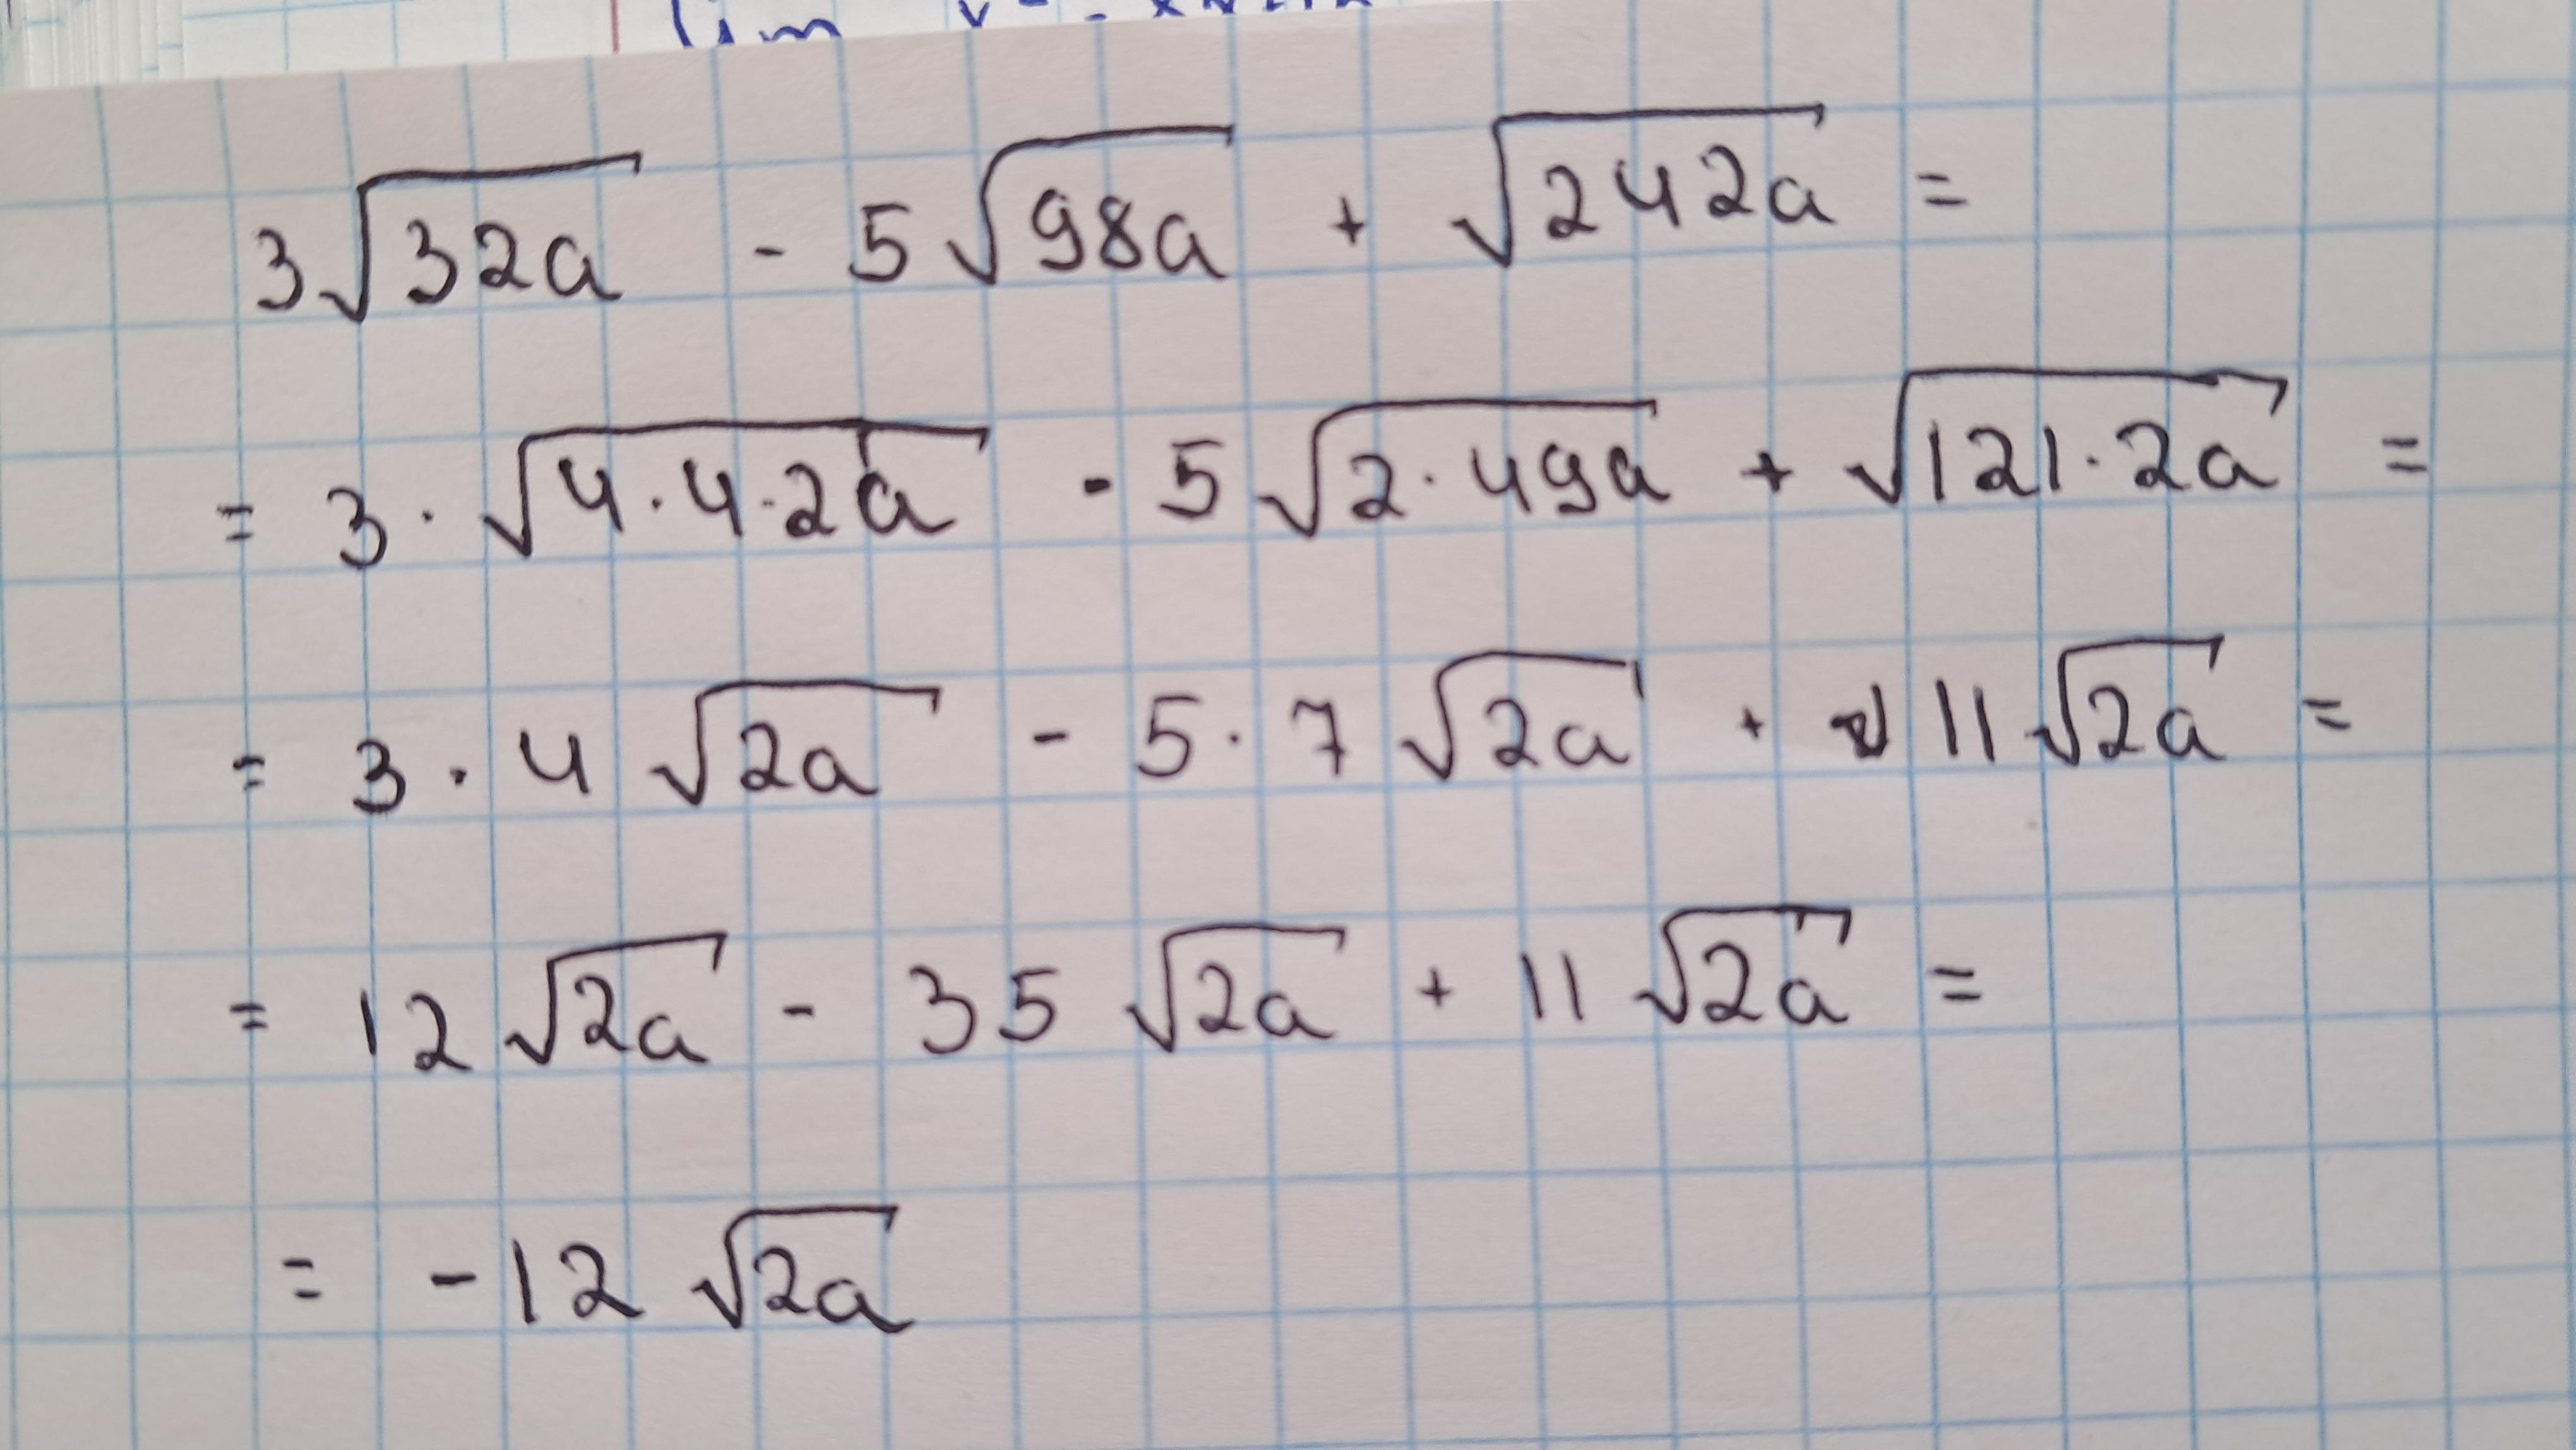 lim
3√32a - 5√98a + √242a =
= 3·√4·4·2a - 5√2·49a + √121·2a =
= 3·4√2a - 5·7√2a + 11√2a =
= 12√2a - 35√2a + 11√2a =
= -12√2a